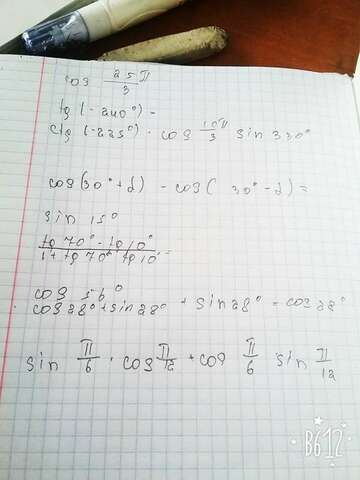 cos 25π/3
tg (-240°) -
ctg (-225°) · cos 10π/3 sin 330°
cos(30°+α) - cos( 30°-α) =
sin 15°
tg 70° - tg 10°
1 + tg 70° tg 10° =
cos 56°
cos 28° + sin 28° + sin 28° - cos 28°
sin π/6 · cos π/12 + cos π/6 sin π/12
B612